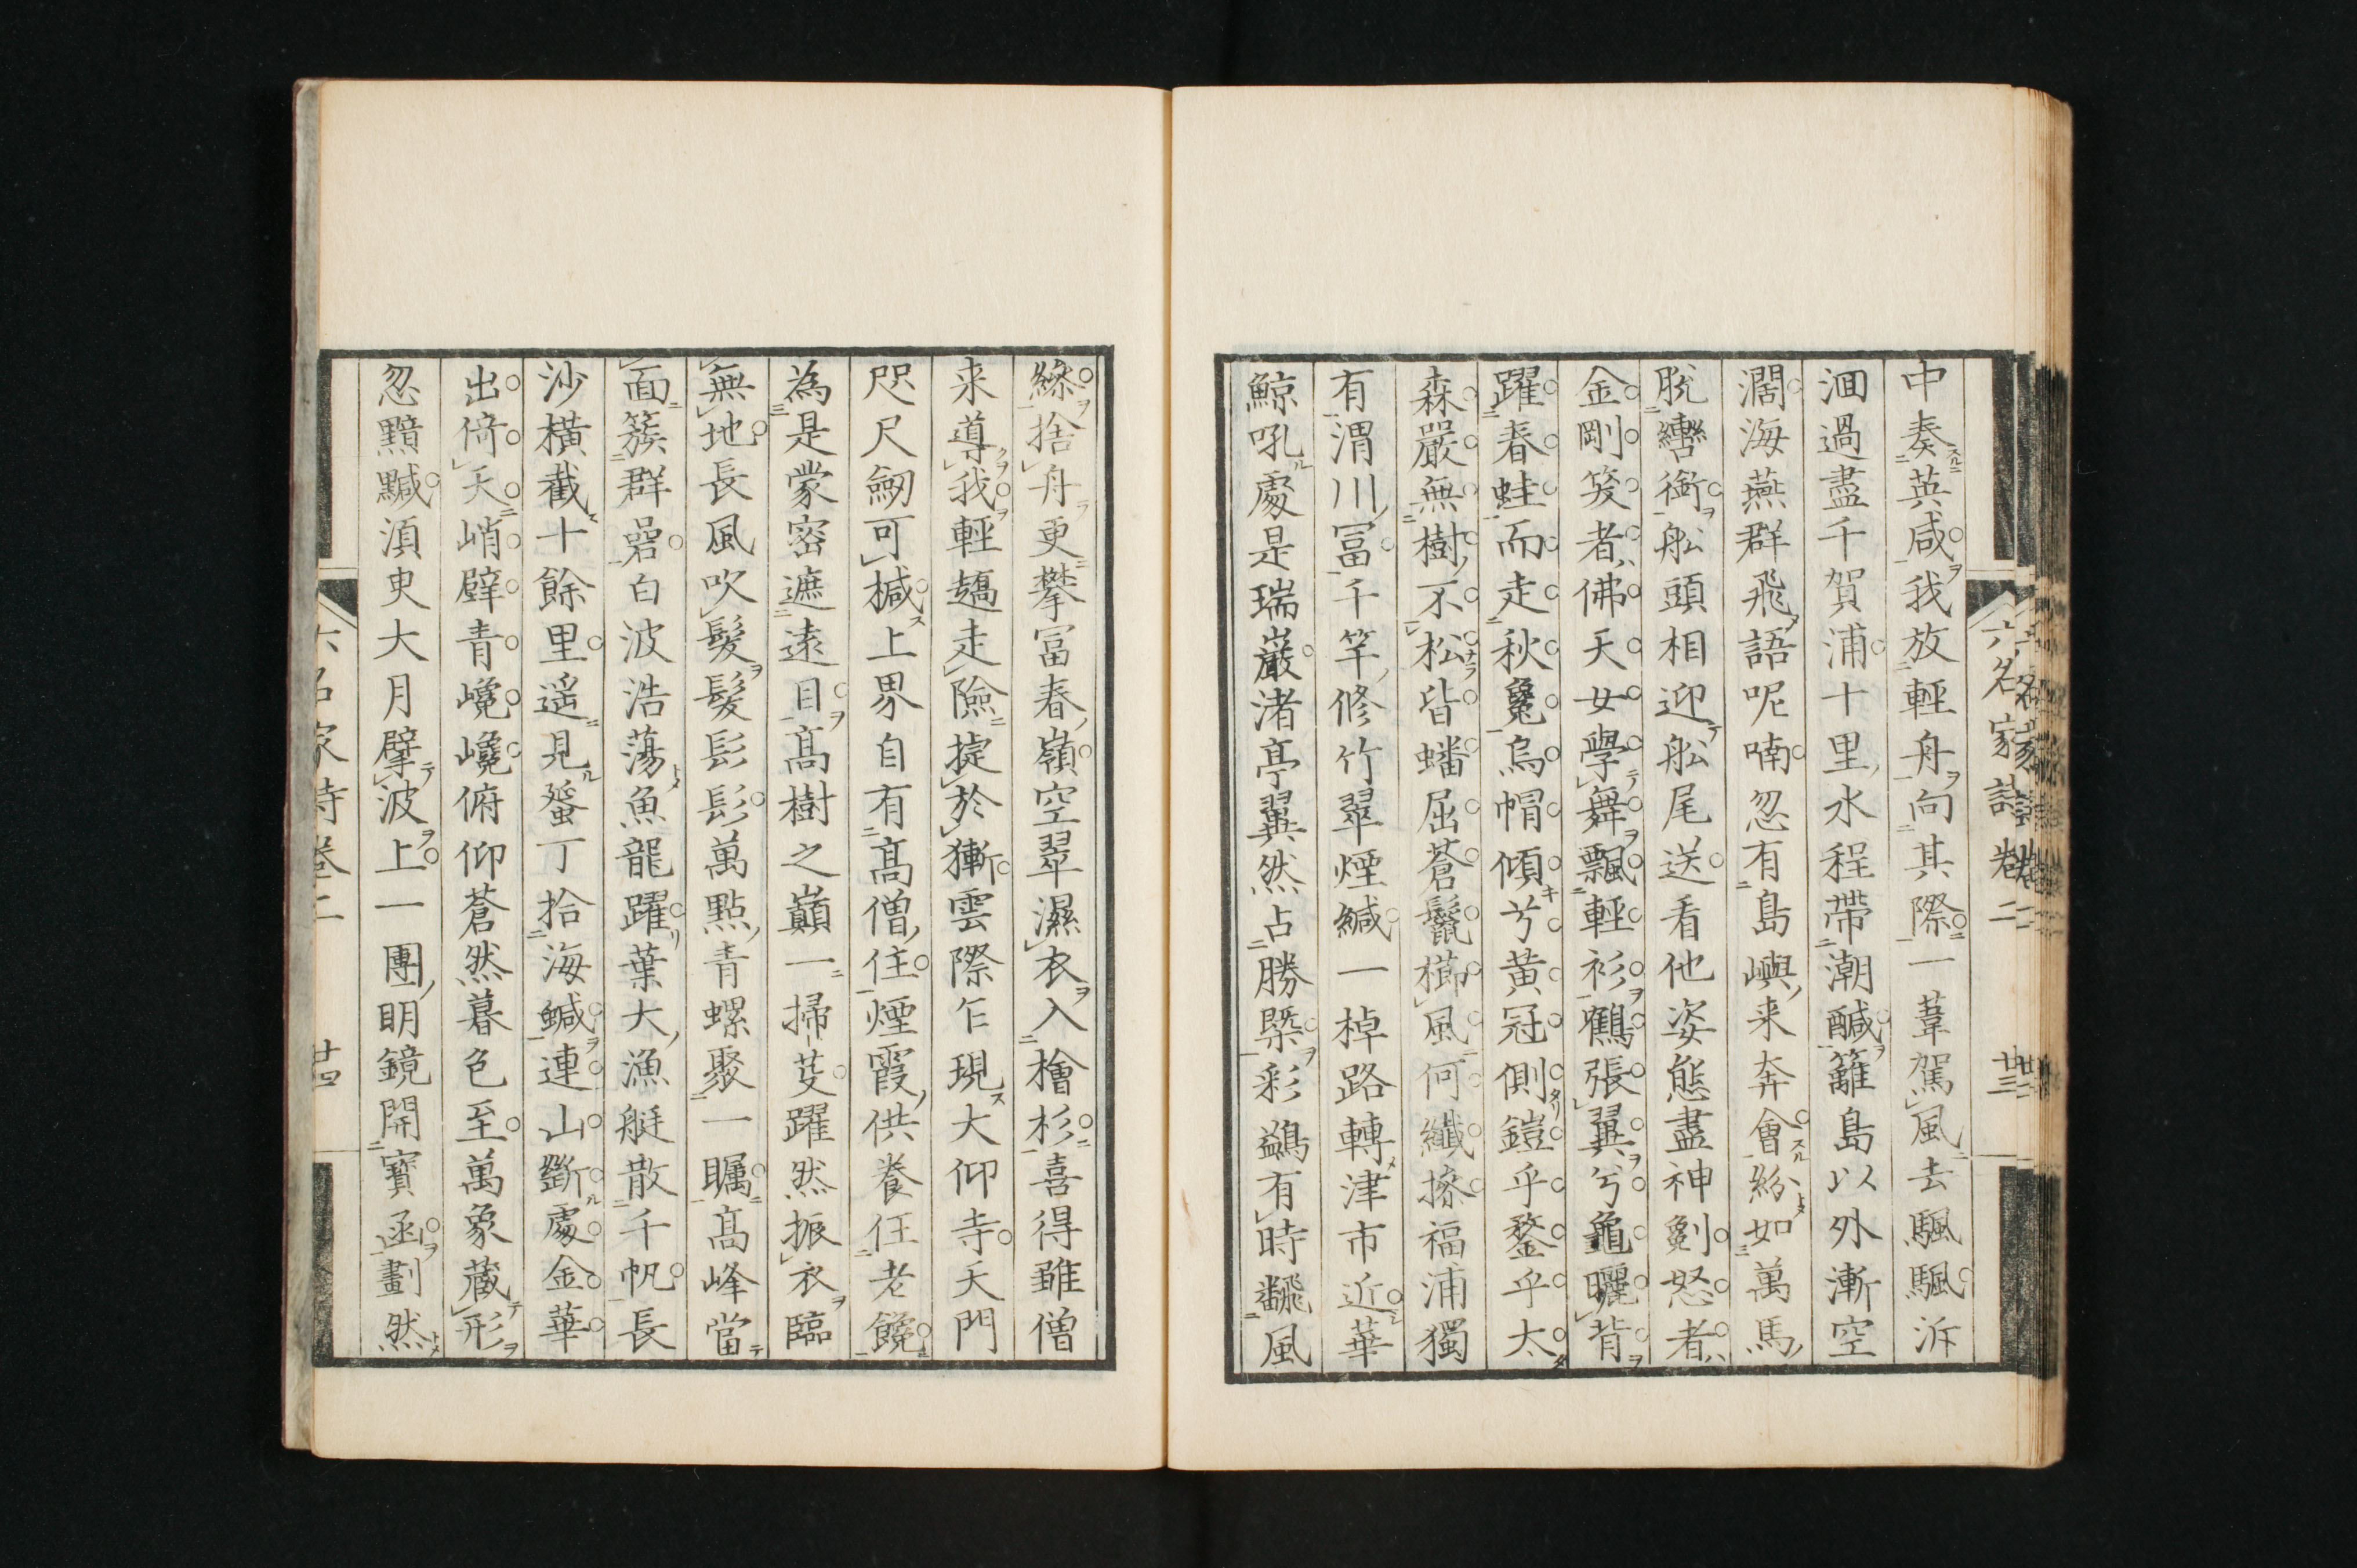 六名家詩 卷二 廿三
中奏英咸我放輕舟向其際一葦駕風去颿颿泝
洄過盡千賀浦十里水程帶潮鹹籬島以外漸空
濶海燕群飛語呢喃忽有島嶼来奔會紛如萬馬
脱轡銜舩頭相迎舩尾送看他姿態盡神剜怒者
金剛笑者佛天女學舞飄輕衫鶴張翼兮龜曬背
躍春蛙而走秋毚烏帽傾兮黄冠側鎧乎鍪乎太
森嚴無樹不松皆蟠屈蒼鬣櫛風何纎摻福浦獨
有渭川冨千竿修竹翠煙緘一棹路轉津市近華
鯨吼處是瑞巌渚亭翼然占勝槩彩鷁有時飜風
縿捨舟更攀冨春嶺空翠濕衣入檜杉喜得雖僧
来導我輕趫走險捷於獑雲際乍現大仰寺天門
咫尺劒可椷上界自有髙僧住煙霞供養任老饞
為是蒙密遮遠目髙樹之巓一掃芟躍然振衣臨
無地長風吹髮髮髟髟萬點青螺聚一矚髙峰當
面簇群碞白波浩蕩魚龍躍葉大漁艇散千帆長
沙横截十餘里遥見蜑丁拾海鰔連山斷處金華
出倚天峭壁青巉巉俯仰蒼然暮色至萬象藏形
忽黯黬湏臾大月擘波上一團明鏡開寳函劃然
六名家詩卷二 廿四